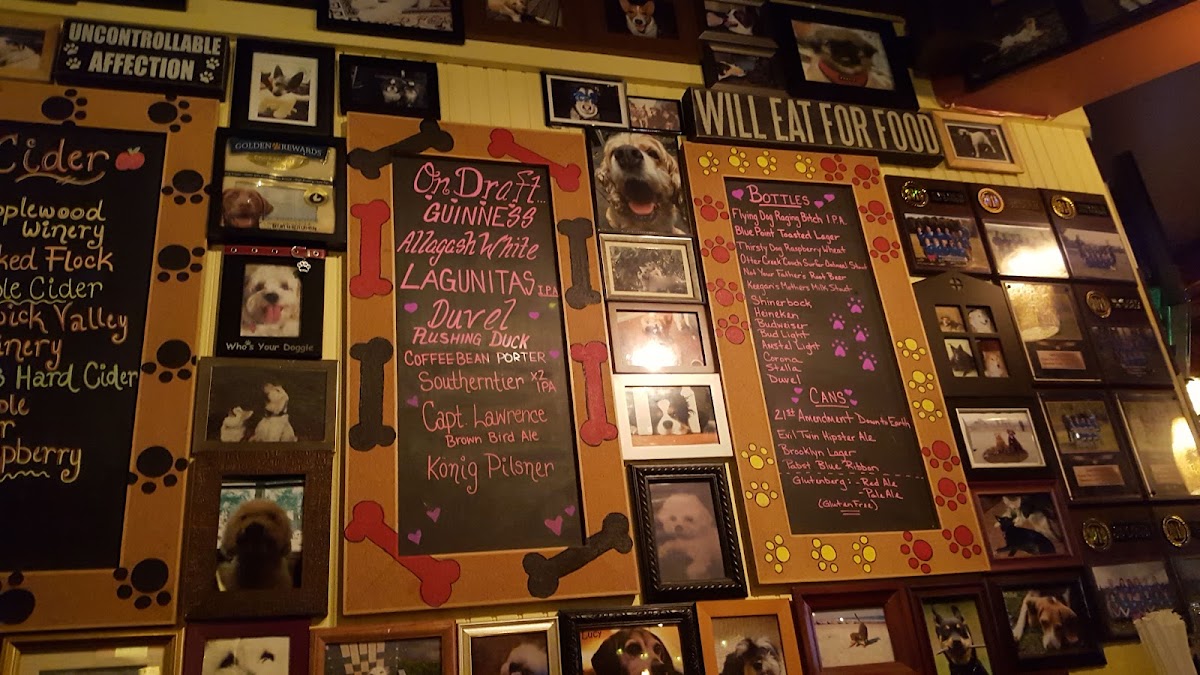 UNCONTROLLABLE
AFFECTION
WILL EAT FOR FOOD
Cider
pplewood
winery
ked Flock
le Cider
ick Valley
inery
Hard Cider
ple
r
pberry
GOLDEN REWARDS
Who's Your Doggie
On Draft...
GUINNESS
Allagash White
LAGUNITAS I.P.A
Duvel
RUSHING DUCK
COFFEE BEAN PORTER
Southerntier x2 IPA
Capt. Lawrence
Brown Bird Ale
König Pilsner
BOTTLES
Flying Dog Raging Bitch I.P.A.
Blue Point Toasted Lager
Thirsty Dog Raspberry Wheat
Otter Creek Couch Surfer Oatmeal Stout
Not Your Father's Root Beer
Keegan's Mother's Milk Stout
Shinerbock
Heineken
Budweiser
Bud Light
Amstel Light
Corona
Stella
Duvel
CANS
21st Amendment Down to Earth
Evil Twin Hipster Ale
Brooklyn Lager
Pabst Blue Ribbon
Glutenberg: -Red Ale
-Pale Ale
(Gluten Free)
Lucy